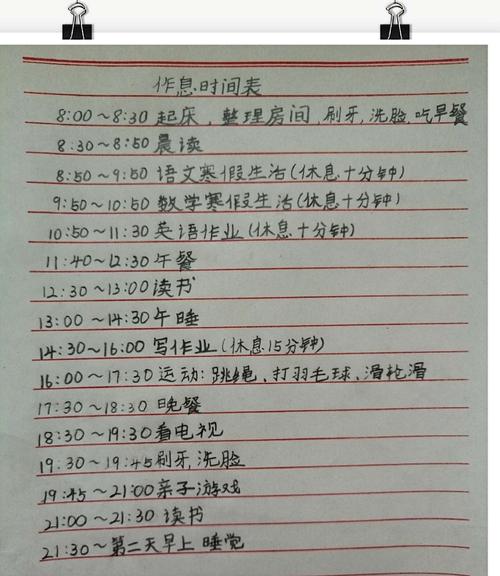 作息时间表
8:00～8:30 起床，整理房间，刷牙，洗脸，吃早餐
8:30～8:50 晨读
8:50～9:50 语文寒假生活(休息十分钟)
9:50～10:50 数学寒假生活(休息十分钟)
10:50～11:30 英语作业(休息十分钟)
11:40～12:30 午餐
12:30～13:00 读书
13:00～14:30 午睡
14:30～16:00 写作业(休息15分钟)
16:00～17:30 运动：跳绳、打羽毛球、滑轮滑
17:30～18:30 晚餐
18:30～19:30 看电视
19:30～19:45 刷牙，洗脸
19:45～21:00 亲子游戏
21:00～21:30 读书
21:30～第二天早上 睡觉